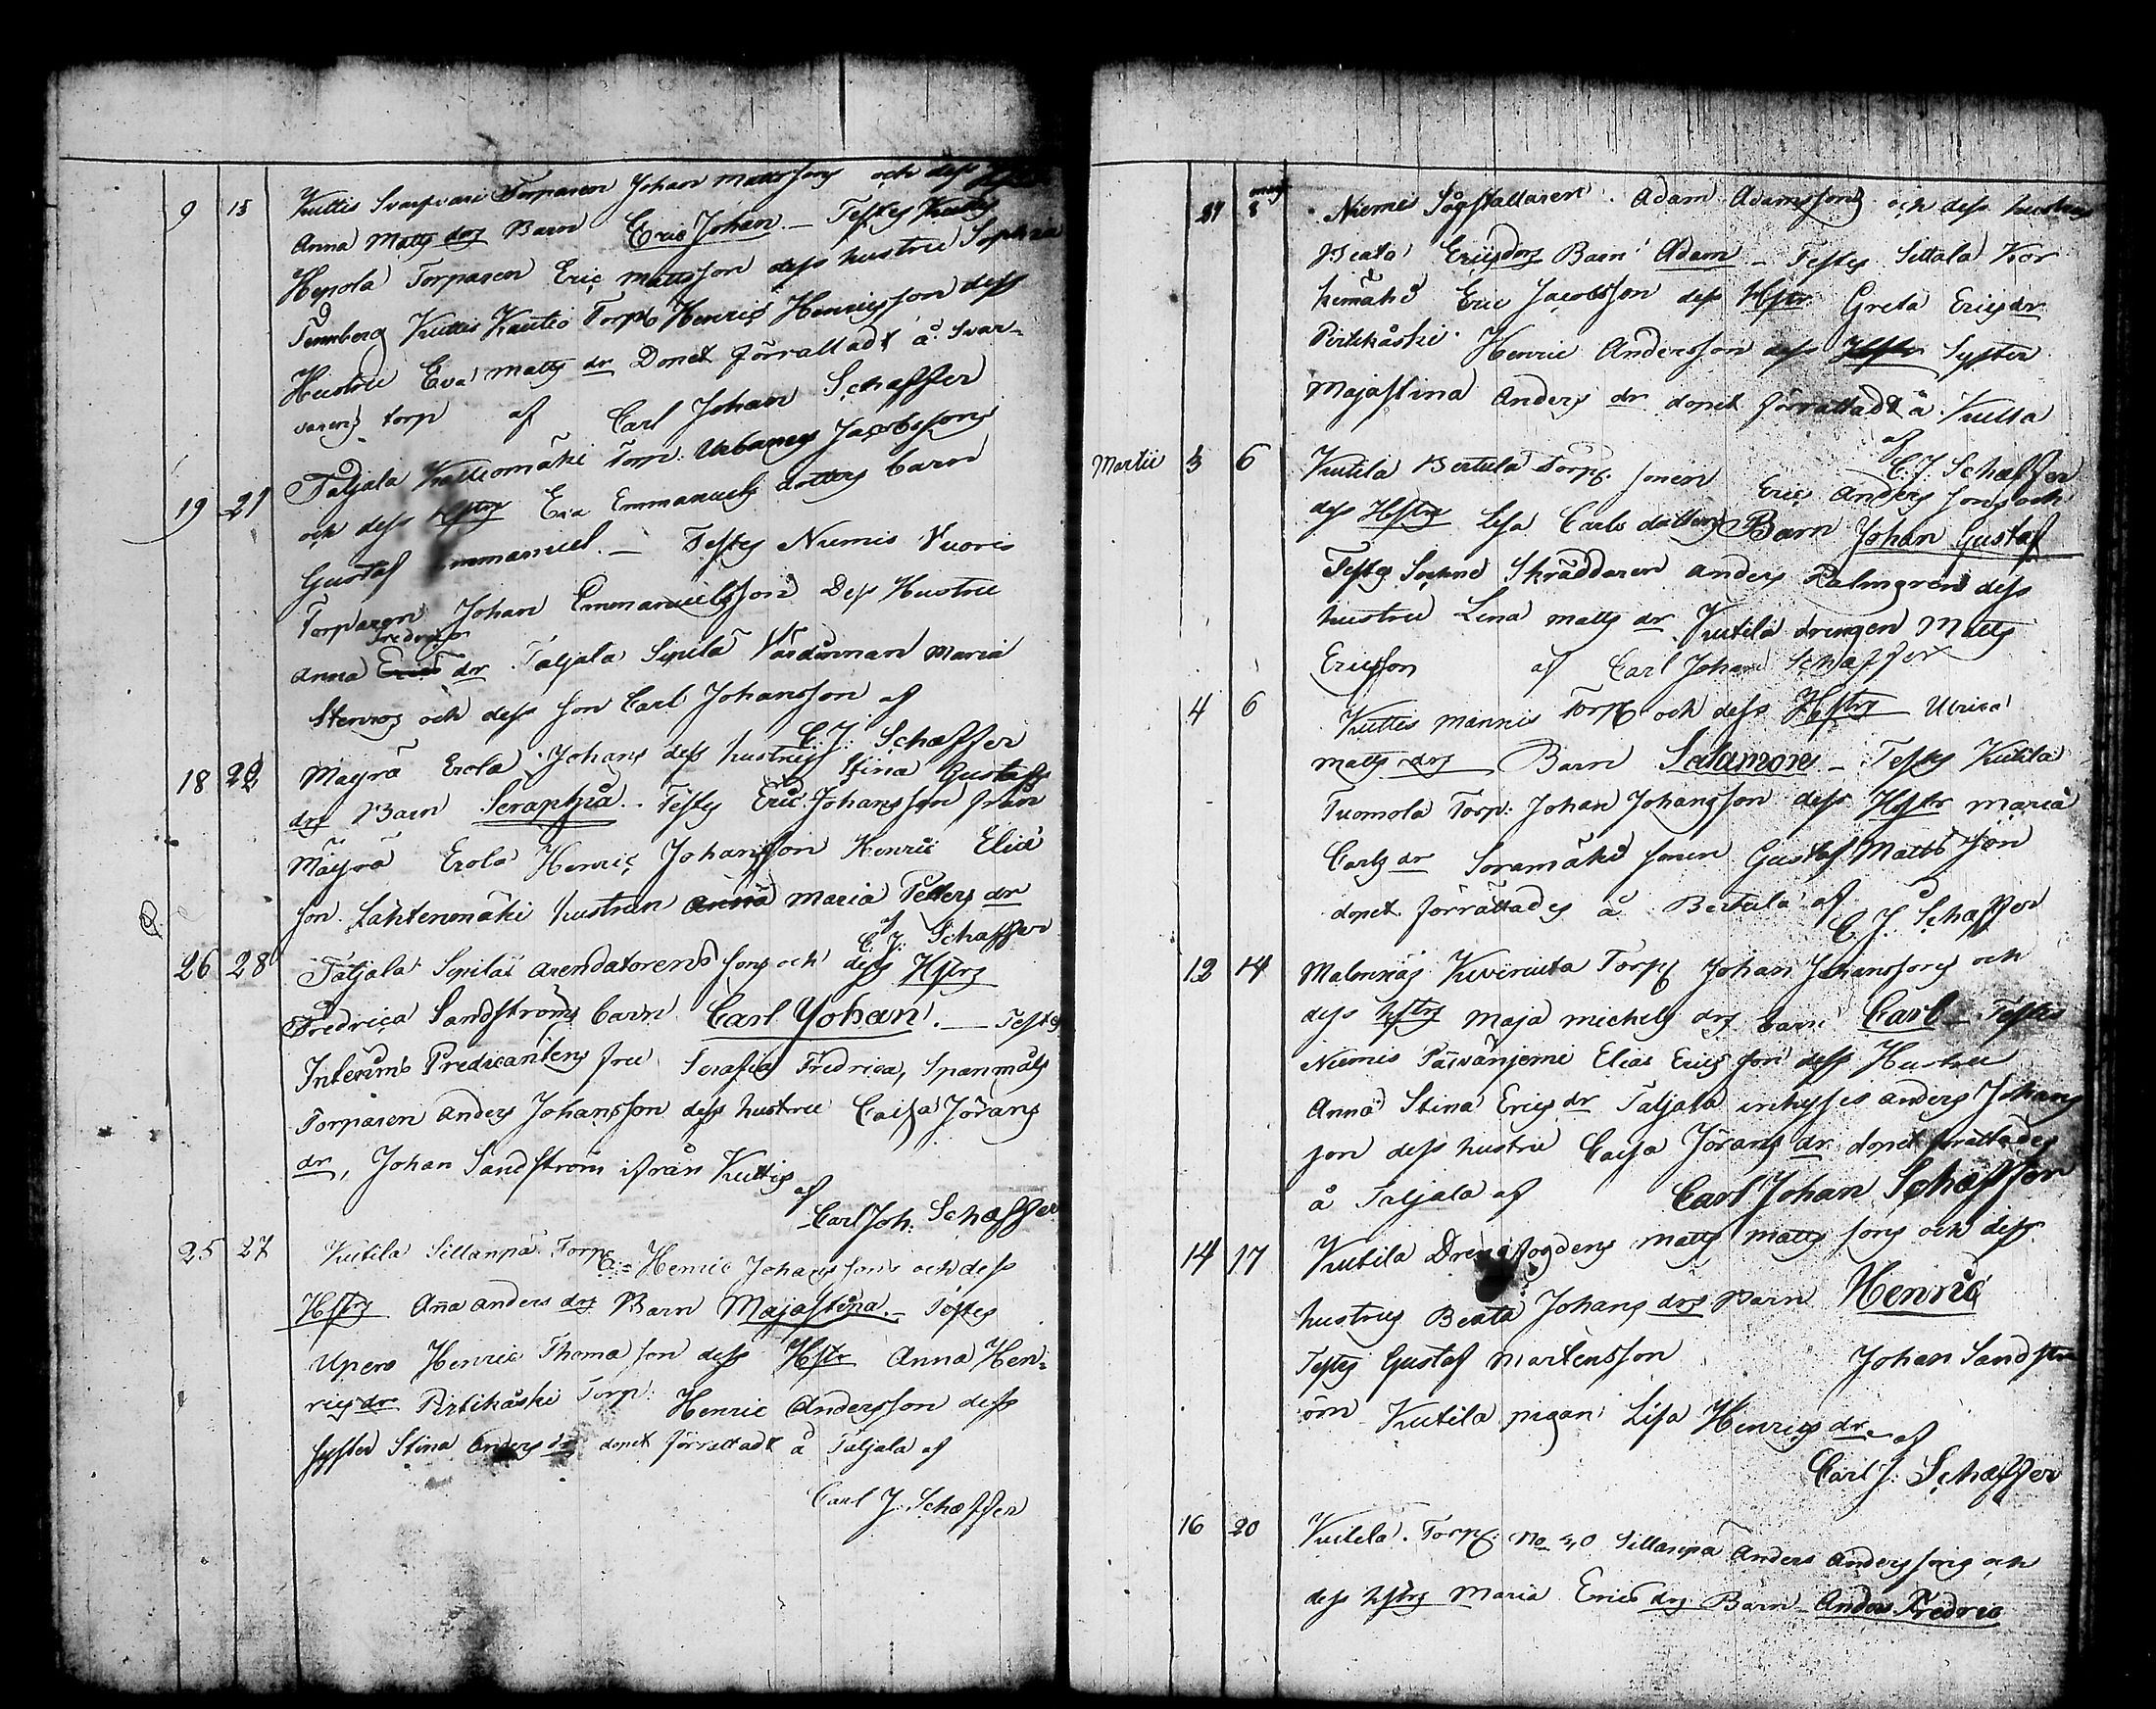 9 13 Kuttis Svarfvare Torparen Johan Mattssons och dess
Anna Matts drs Barn Eric Johan – Testes Kuttis
Hepola Torparen Eric Mattsson dess hustru Sophia
Tennberg Kuttis Kautio Torp: Henric Henricsson dess
Hustru Eva Matts dr Dopet förrattadt å Svar-
varens torp af Carl Johan Schæffer
19 21 Taljala Kalliomäki Torp: Urbanus Jacobssons
och dess Hstrs Eva Emmanuels dotters barn
Gustaf Emmanuel. – Testes Niemis Vuoris
Torparen Johan Emmanuelsson Dess Hustru
Fredrics
Anna Erics dr Taljala Sipilä Värdinnan Maria
Stenros och dess son Carl Johansson af
C. J: Schæffer
18 22 Mäyrä Erola Johans dess hustrus Stina Gustafs
drs Barn Seraphia. – Testes Eric Johansson från
Mäyrä Erola Henric Johansson Henric Elia
son. Lähtenmäki hustrun Anna Maria Petters dr
af C. J: Schæffer
26 28 Taljala Sipilä arendatorens sons och dess Hstrs
Fredrica Sandströms barn Carl Johan. – Testes
Interims Predicantens fru Serafia Fredrica, Spanmåls
Torparen Anders Johansson dess hustru Caisa Jörans
dr, Johan Sandström ifrån Kuttis
af Carl Joh: Schæffer
25 27 Kutila Sillanpä Torp: Henric Johanssons och dess
Hstrs Aña Anders drs Barn Majastina. – Testes
Upero Henric Thomason dess Hstr Anna Hen-
rics dr Pirtikåski Torp: Henric Andersson dess
syster Stina Anders dr dopet förrattadt å Taljala af
Carl J: Schæffer
29 Mars 8 Niemis Adam Adamssons och dess hustrus
Beata Erics drs Barn Adam – Testes Sittala Kor
kemäki Eric Jacobsson dess Hstr Greta Erics dr
Pirtikåski Henric Andersson dess Hstr Syster
Majastina Anders dr dopet förrattadt å Kutila
af C. J. Schæffer
Martii 3 6 Kutila Bertula Torp: sonen Eric Anderssons och
dess Hstrs Lisa Carls dotters Barn Johan Gustaf
Testes Sockne Skräddaren Anders Palmgren dess
hustru Lena Matts dr Kutila drengen Matts
Ericsson af Carl Johan Schæffer
4 6 Kuttis Mannis Torp: och dess Hstrs Ulrica
Matts drs Barn Salamon – Testes Kutila
Tuomola Torp: Johan Johansson dess Hstr Maria
Carls dr Soramäki sonen Gustaf Matts son
dopet förrättades å Bertula af
C. J. Schæffer
12 14 Torp: Johan Johanssons och
dess hstrs Maja Michels drs barn Carl – Testes
Niemis Päivänjemi Elias Ericsson dess Hustru
Anna Stina Erics dr Taljala inhysis Anders Johans
son dess hustru Caisa Jörans dr dopet förättades
å Taljala af Carl Johan Schæffer
14 17 Kutila Drengfogdens Matts Matts sons och dess
hustrus Beata Johans drs Barn Henric
Testes Gustaf Mårtensson Johan Sandstr
öm Kutila pigan Lisa Henrics dr. af
Carl J: Schæffer
16 20 Kutila Torp: No 30 Sillanpä Anders Anderssons och
dess hstrs Maria Erics drs Barn – Anders Fredric